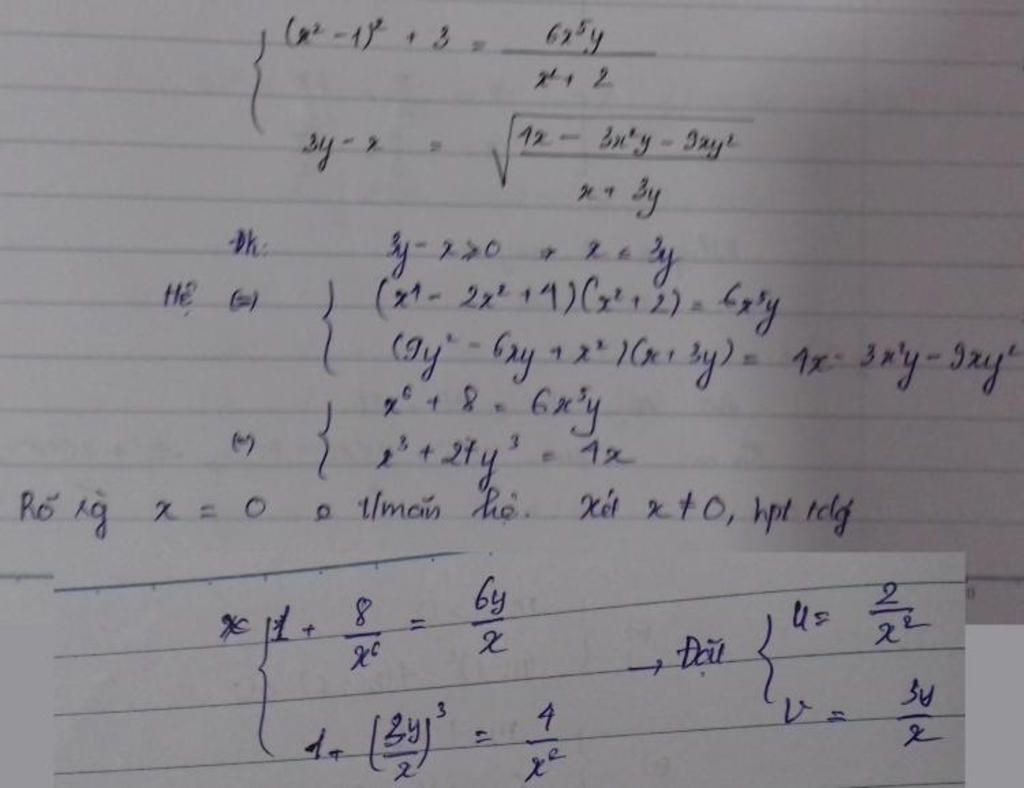 { (x² - 1)² + 3 = 6x⁵y / (x² + 2)
3y - x = √((4x - 3x²y - 9xy²) / (x + 3y))
Đk: 3y - x ≥ 0 → x ≤ 3y
Hệ (=) { (x⁴ - 2x² + 4)(x² + 2) = 6x⁵y
(9y² - 6xy + x²)(x + 3y) = 4x - 3x²y - 9xy²
(=) { x⁶ + 8 = 6x⁵y
x³ + 27y³ = 4x
Rõ ràng x = 0 t/mãn hệ. Xét x ≠ 0, hpt tđg
{ 1 + 8/x⁶ = 6y/x → Đặt { u = 2/x²
1 + (3y/x)³ = 4/x² v = 3y/x